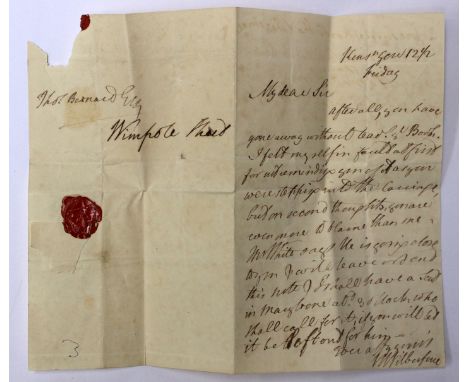 Thos. Bernard Esq
Wimpole Street
3
Kensn Gore 12½
Friday
My dear Sir
after all, you have
gone away without
I felt myself in fault at first
for not reminding you of it as you
were stepping into the Carriage,
but on second thoughts, you are
even more to blame than me -
Mr White says He is going close
to you & will leave
this note & I shall have a Servt
in Marybone abt 3 oClock, who
shall call for it, if you will let
it be left out for him -
Ever
W Wilberforce